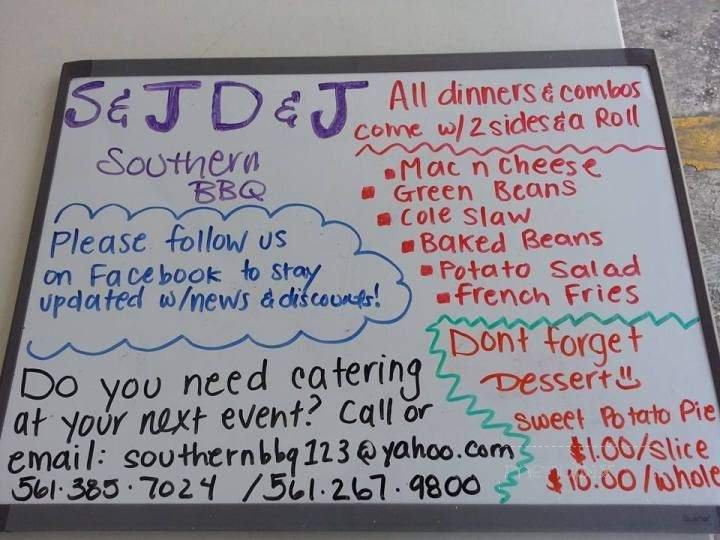 S & J D & J
Southern
BBQ
Please follow us
on Facebook to stay
updated w/news & discounts!
Do you need catering
at your next event? Call or
email: southernbbq123@yahoo.com
561.385.7024 / 561.267.9800
All dinners & combos
come w/ 2 sides & a Roll
Mac n Cheese
Green Beans
Cole Slaw
Baked Beans
Potato Salad
French Fries
Dont forget
Dessert
Sweet Potato Pie
$1.00/slice
$10.00/whole